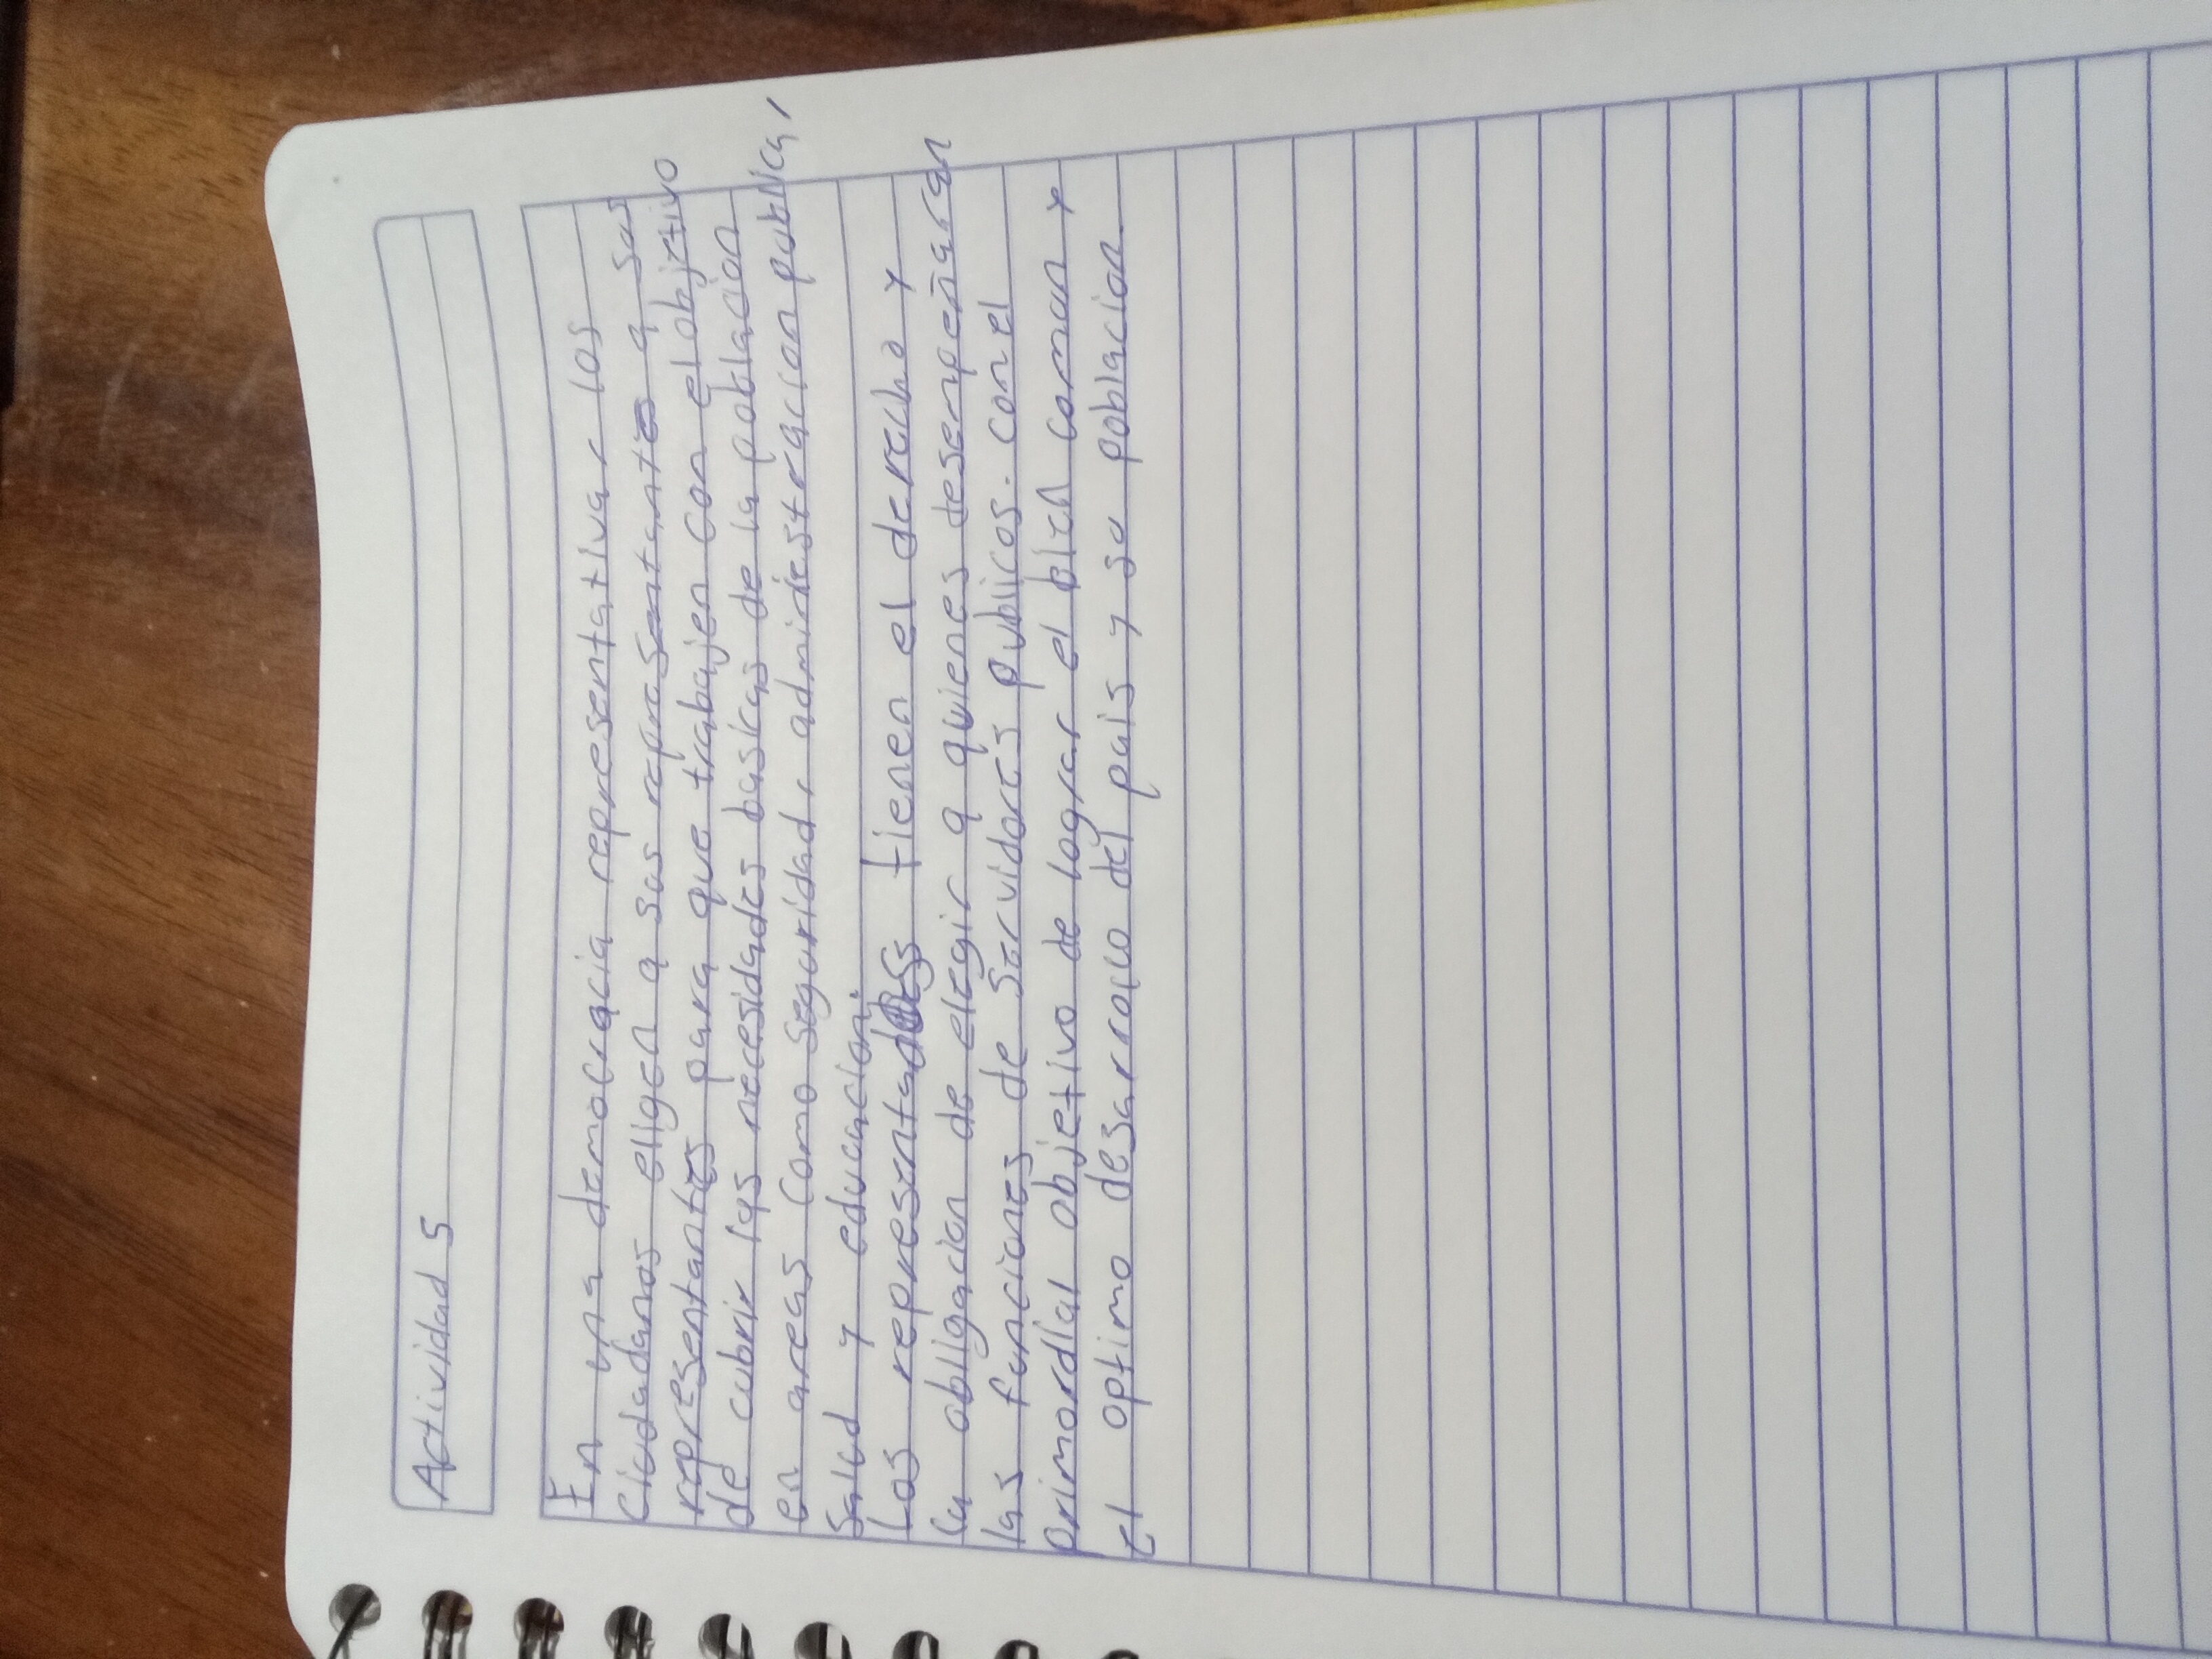 Actividad 5
En una democracia representativa, los
ciudadanos eligen a sus representantes a sus
representantes para que trabajen con el objetivo
de cubrir las necesidades basicas de la poblacion
en areas como seguridad, administracion publica,
salud y educacion.
Los representados tienen el derecho y
la obligacion de elegir a quienes desempeñaran
las funciones de servidores publicos. con el
primordial objetivo de lograr el bien comun y
el optimo desarrollo del pais y su poblacion